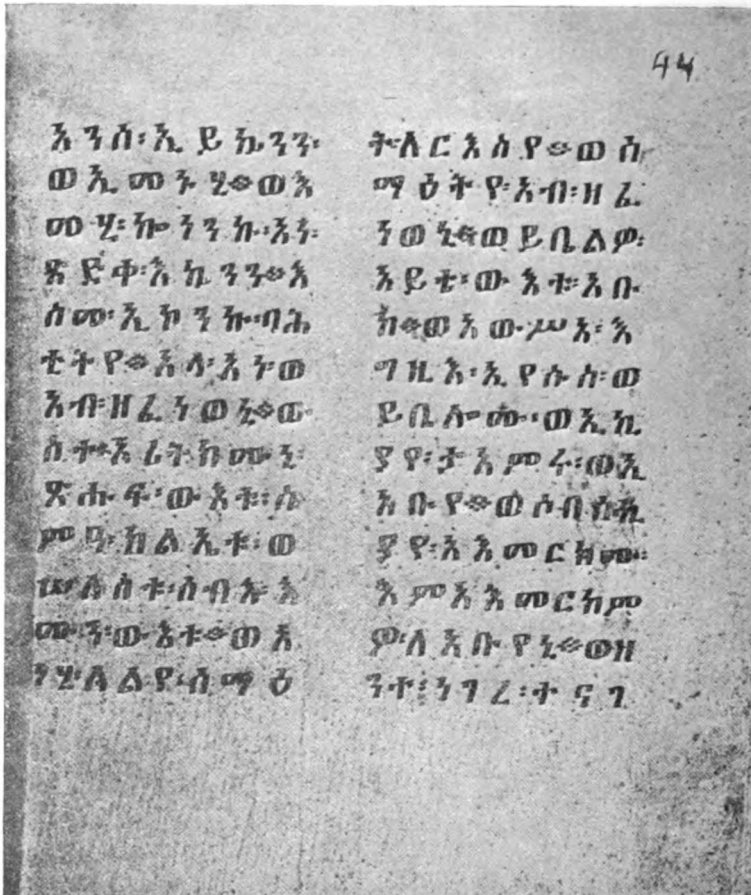 44
አንሰ፡ኢይኬንን፡
ወኢመኑሂ።ወእ
መሂ፡ኰነንኩ፡አነ፡
ጽድቀ፡እኬንን።እ
ስመ፡ኢኮንኩ፡ባሕ
ቲትየ።አላ፡አነ፡ወ
አብ፡ዘፈነወኒ።ው
ስተ፡ኦሪትክሙኒ፡
ጽሑፍ፡ውእቱ፡ስ
ምዓ፡ክልኤቱ፡ወ
ሠለስቱ፡ሰብእ፡እ
ሙን፡ውእቱ።ወአ
ንሂ፡ለልየ፡ሰማዕ
ት፡ለርእስየ።ወሰ
ማዕትየ፡አብ፡ዘፈ
ነወኒ።ወይቤልዎ፡
አይቴ፡ውእቱ፡አቡ
ከ።ወአውሥአ፡እ
ግዚእ፡ኢየሱስ፡ወ
ይቤሎሙ፡ወኢኪ
ያየ፡ታአምሩ፡ወኢ
አቡየ።ወሶበሰኪ
ያየ፡አእመርክሙ፡
እምአእመርክም
ዎ፡ለአቡየኒ።ወዘ
ንተ፡ነገረ፡ተናገ